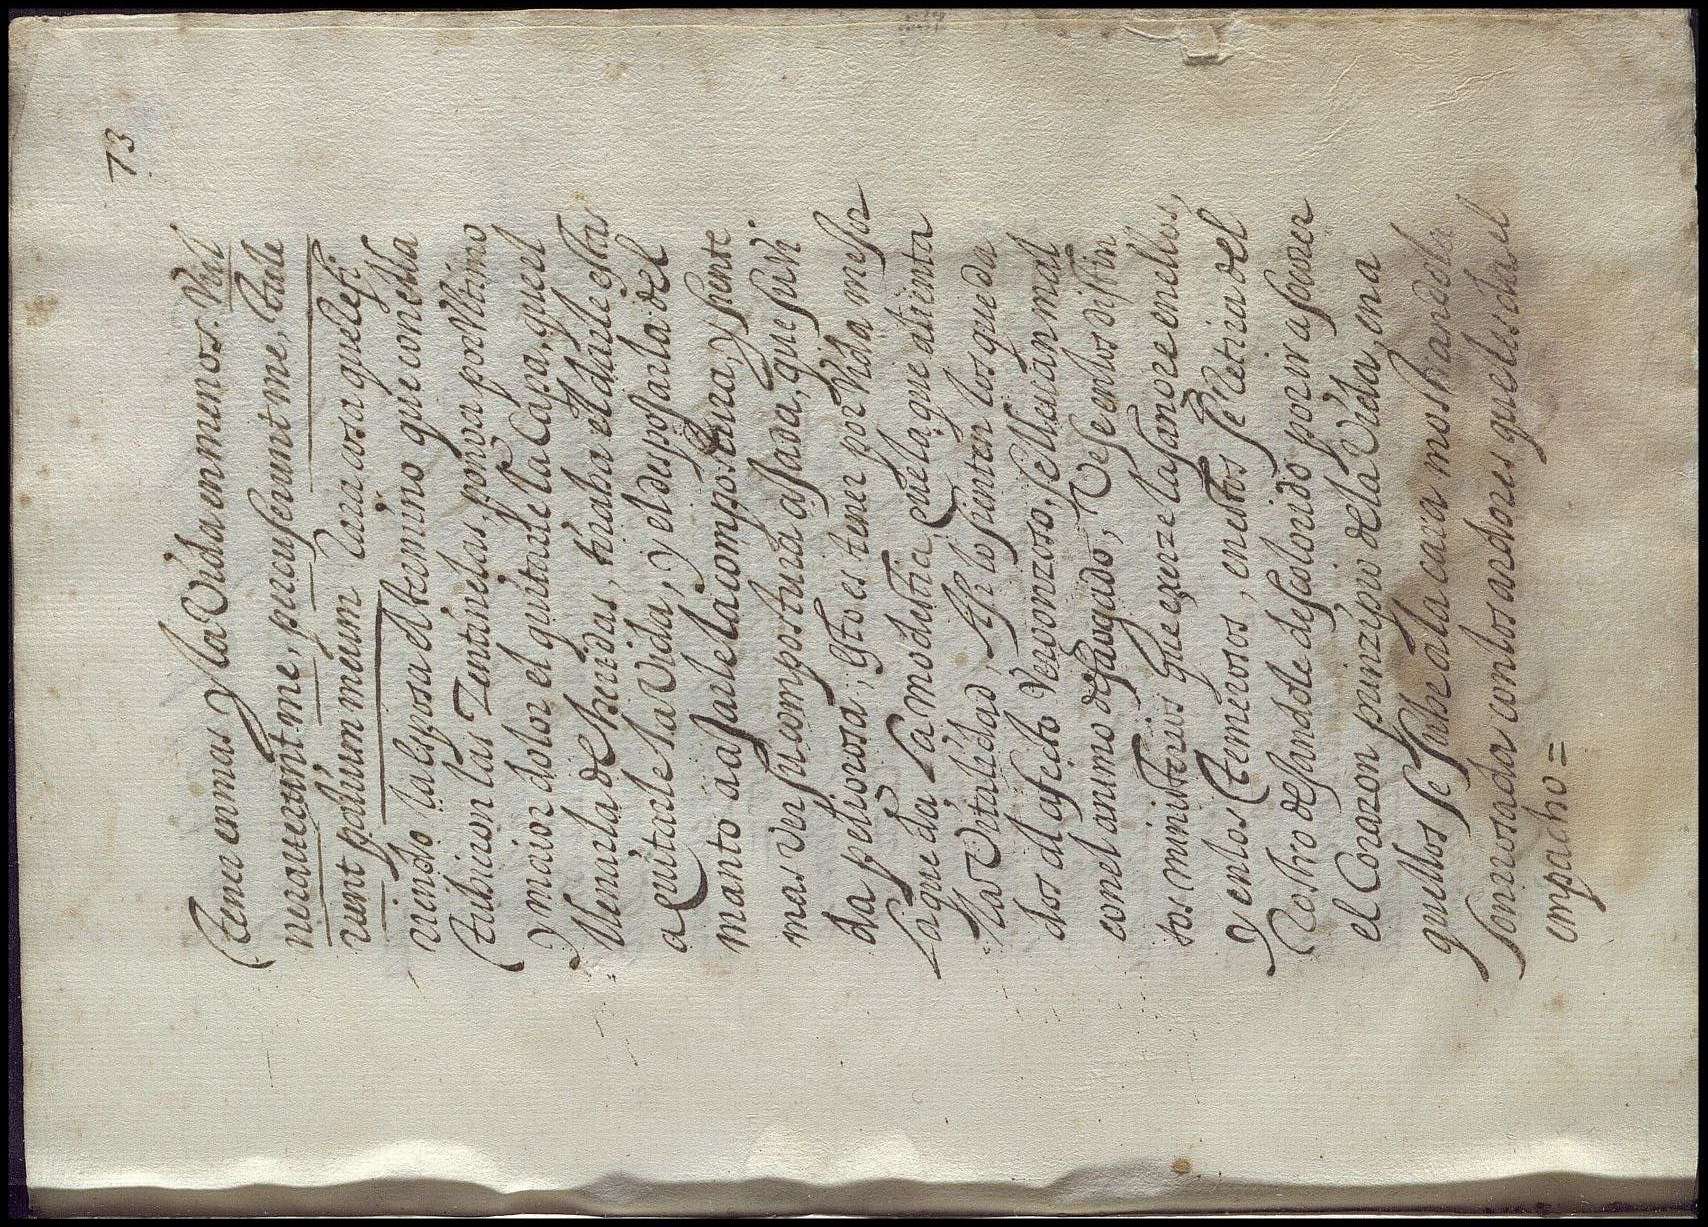 73
tener en mas, y la Vida en menos. Vul
neraverunt me, percuserunt me, tule
runt palium meum Rara cosa que lefi
riendo la esposa el termino que con ella
tubieron las Zentinelas, ponga por Vltimo
y maior dolor el quitarle la Capa, que el
Venirla de heridas, tiraba el darle esta
a quitarle la Vida, y el despojarla del
manto a ajarle la compostura, y siente
mas ver su compostura ajada, que su Vi
da peligrosa; esto es tener por Vida mejor
la que da la modestia, que la que alienta
las Vitalidad, Assi lo sienten los que da
dos al afecto Vergonzoso, se llevan mal
con el animo desaugado, Vese en los distin
tos ministerios que exerze la sangre en ellos,
y en los temerosos, en estos se Retira del
Rostro dejandole descolorido por ir a favorecer
el Corazon prinzipio de la Vida, en a
quellos se sube a la cara mostrandola
sonrrosada con los ardores que les echa el
empacho =